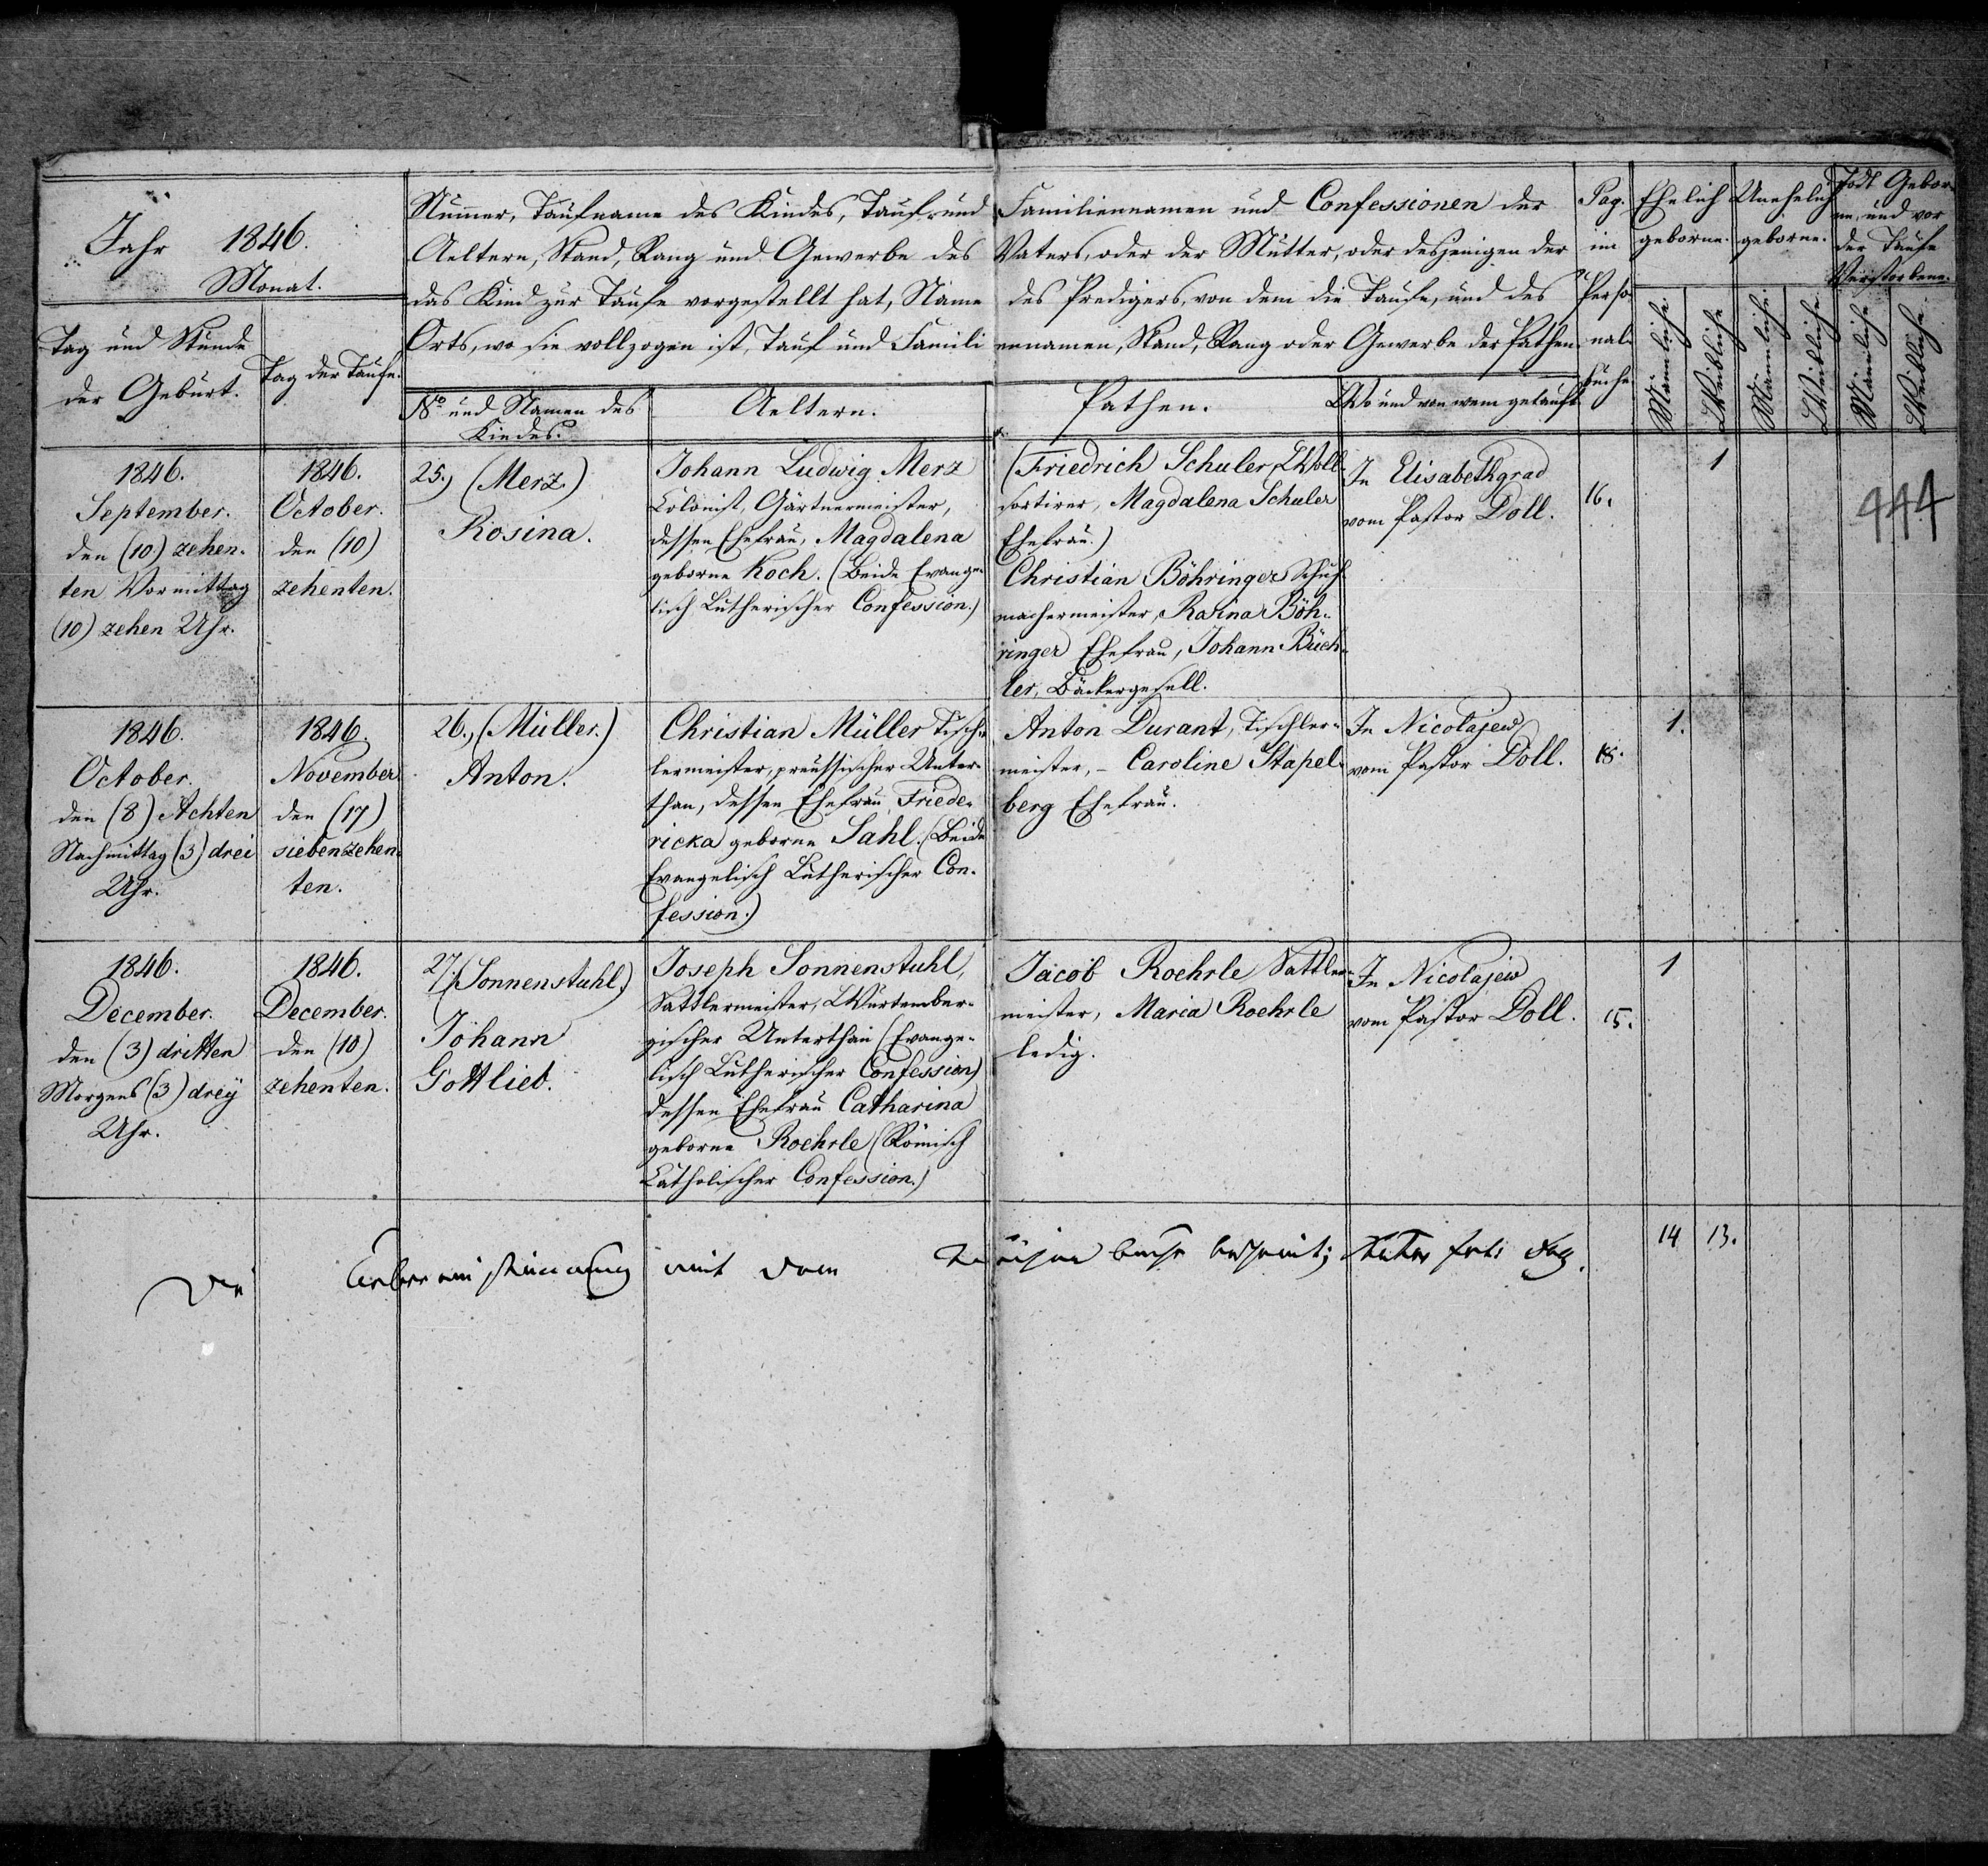 Jahr 1846.
Monat.
Tag und Stunde
der Geburt.
Tag der Taufe.
Numer, Taufname des Kindes, Tauf- und Familiennamen und Confessionen der
Aeltern, Stand, Rang und Gewerbe des Vaters, oder der Mutter, oder desjenigen der
das Kind zur Taufe vorgestellt hat, Name des Predigers, von dem die Taufe, und des
Orts, wo sie vollzogen ist, Tauf und Famili ennamen, Stand, Rang oder Gewerbe der Pathen.
No und Namen des
Kindes.
Aeltern.
Pathen.
Wo und von wem getauft
Pag.
im
Perso
nal-
buche
Ehelich
geborne.
Unehelich
geborne.
Todt Gebor-
ne, und vor
der Taufe
Verstorbene.
Mänliche
Weibliche
Mänliche
Weibliche
Mänliche
Weibliche
1846.
September.
den (10) zehen-
ten Vormittag
(10) zehen Uhr.
1846.
October.
den (10)
zehenten.
25.) (Merz.)
Rosina.
Johann Ludwig Merz
Colonist, Gärtnermeister,
dessen Ehefrau, Magdalena
geborne Koch. (Beide Evange-
lisch Lutherischer Confession.)
(Friedrich Schuler, Woll-
sortirer, Magdalena Schuler
Ehefrau.)
Christian Böhringer Schuh-
machermeister, Rosina Böh-
ringer Ehefrau, Johann Büch-
ler, Bäckergesell.
In Elisabethgrad
vom Pastor Doll.
16.
1
444
1846.
October.
den (8) Achten
Nachmittag (3) drei
Uhr.
1846.
November
den (17)
siebenzehen-
ten.
26., (Müller.)
Anton.
Christian Müller Tisch-
lermeister, preussischer Unter-
than, dessen Ehefrau Friede-
ricka geborne Sahl. (Beide
Evangelisch Lutherischer Con-
fession.)
Anton Durant, Tischler-
meister, - Caroline Stapel-
berg Ehefrau.
In Nicolajew
vom Pastor Doll.
1.
1846.
December.
den (3) dritten
Morgens (3) dreÿ
Uhr.
1846.
December.
den (10)
zehenten.
27. (Sonnenstuhl.)
Johann
Gottlieb.
Joseph Sonnenstuhl,
Sattlermeister, Würtember-
gischer Unterthan (Evange-
lisch Lutherischer Confession)
dessen Ehefrau Catharina
geborne Roehrle (Römisch
Catholischer Confession.)
Jacob Roehrle Sattler-
meister, Maria Roehrle
ledig.
In Nicolajew
vom Pastor Doll.
15.
1
14 13.
Die Uebereinstimmung mit dem